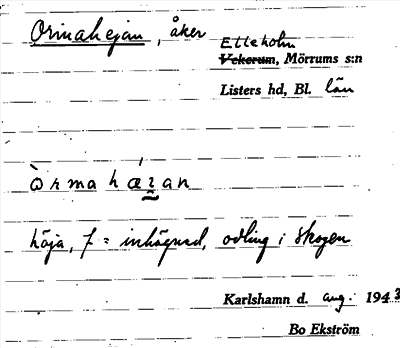 Ormahejan, åker
Elleholm
Vekerum, Mörrums s:n
Listers hd, Bl. län
òrmahǽʒan
häja, f = inhägnad, odling i skogen
Karlshamn d. aug. 1943
Bo Ekström